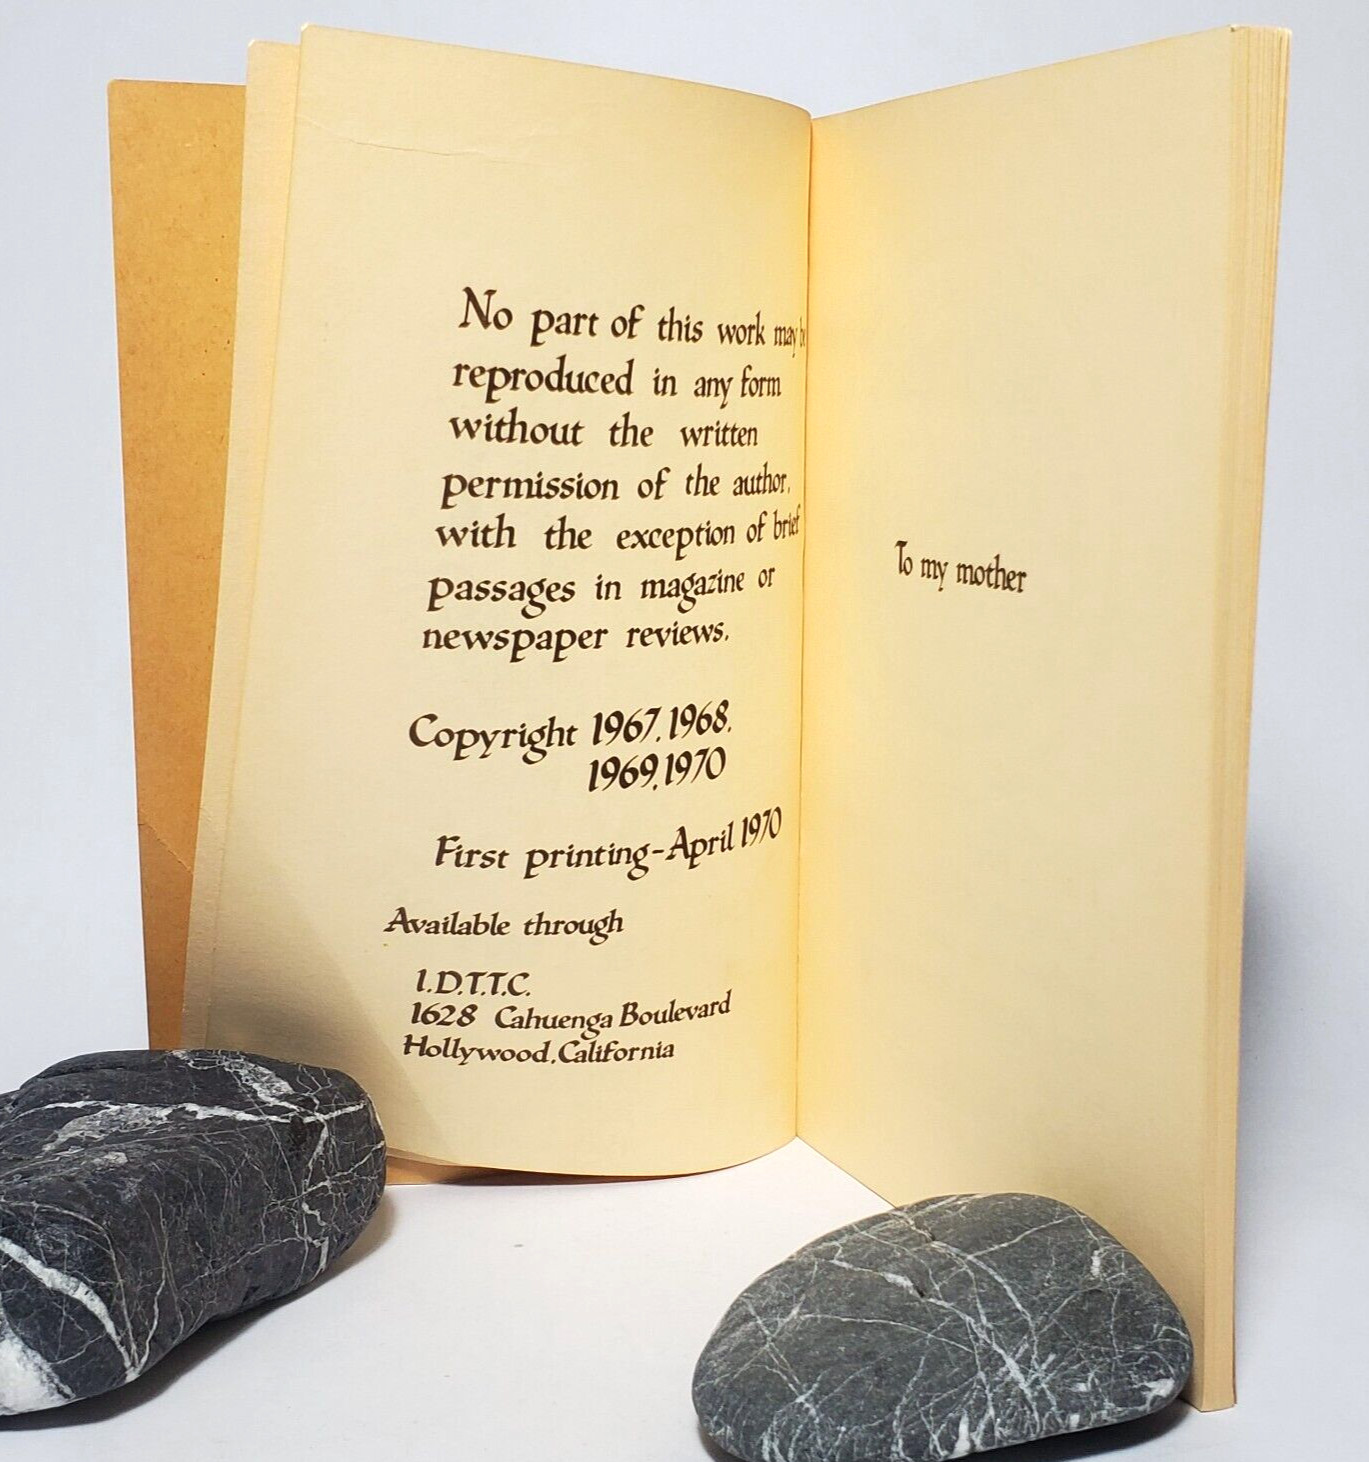 No part of this work may be
reproduced in any form
without the written
permission of the author,
with the exception of brief
passages in magazine or
newspaper reviews.
Copyright 1967, 1968,
1969, 1970
First printing-April 1970
Available through
I.D.T.T.C.
1628 Cahuenga Boulevard
Hollywood, California
To my mother